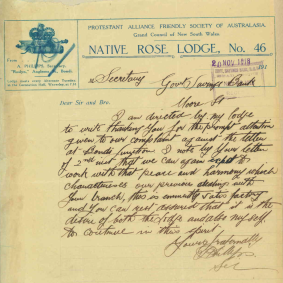 PROTESTANT ALLIANCE FRIENDLY SOCIETY OF AUSTRALASIA.
Grand Council of New South Wales
NATIVE ROSE LODGE, No. 46
From
A. PHILLIPS, Secretary,
20 NOV 1918
Secretary Govt Savings Bank
Moore St
Dear Sir and Bro.
I am directed by my lodge
to write thanking You for the prompt attention
given to our complaint against the teller
at Bondi Junction I note by Your letter
of 2nd inst that we can again expect to
work with that peace and harmony which
characterises our previous dealings with
Your branch, this is eminently satisfactory
and You can rest assured that it is the
desire of both the Lodge and also my self
to continue in this spirit
Yours fraternally
A Phillips
Sec